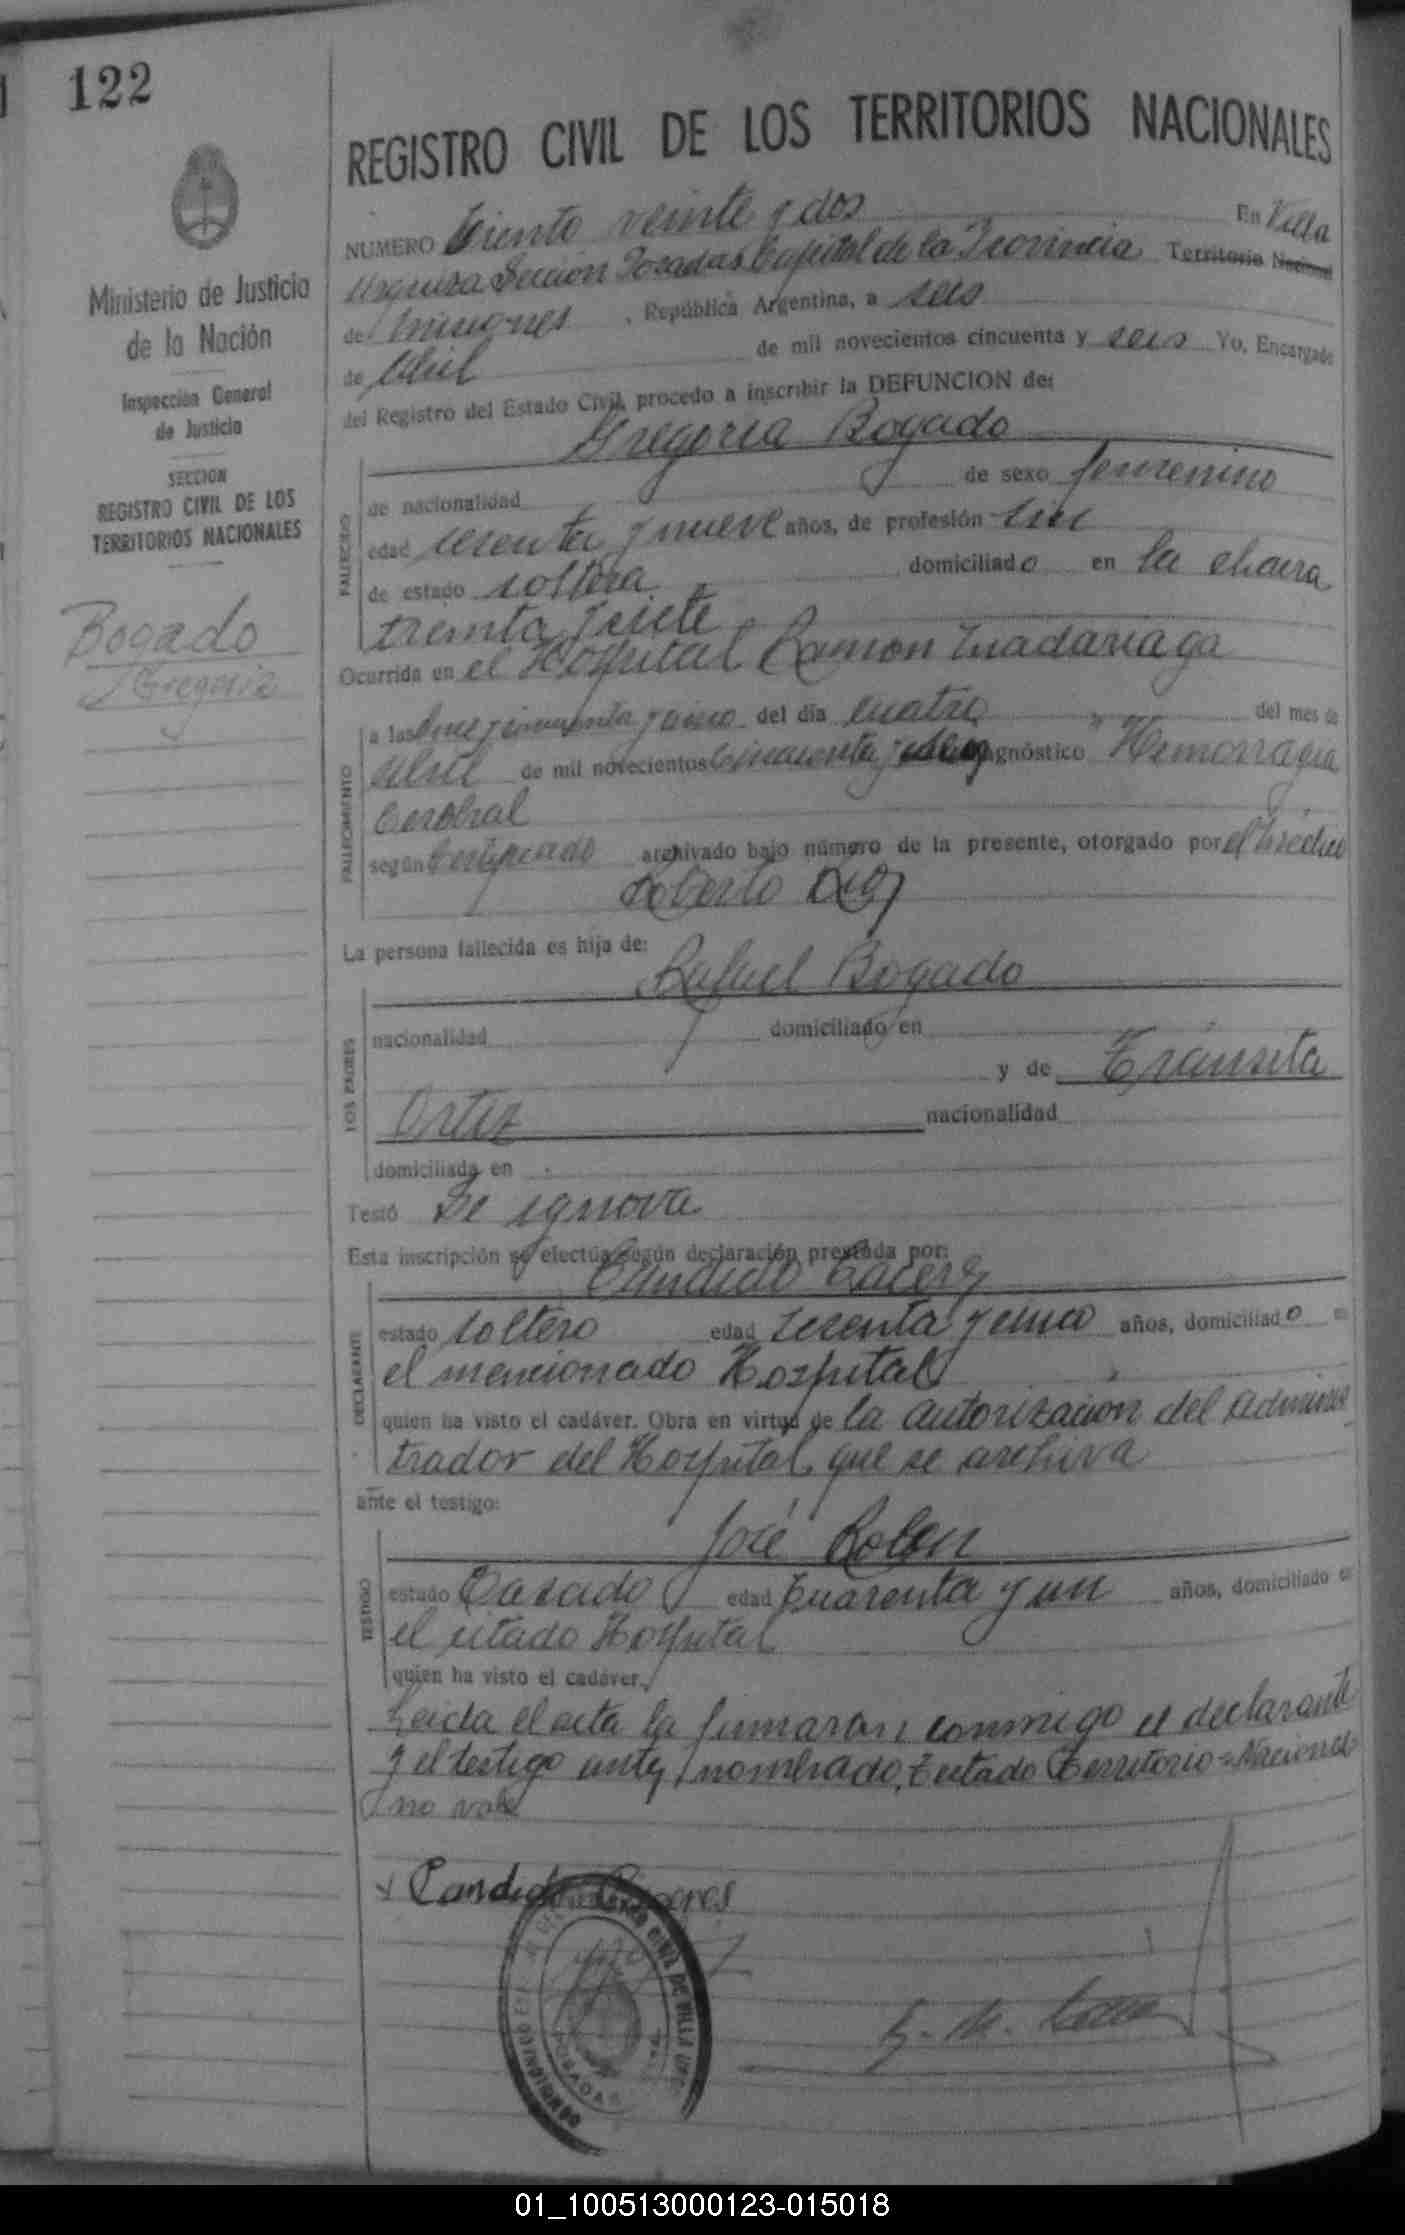 122
REGISTRO CIVIL DE LOS TERRITORIOS NACIONALES
Ministerio de Justicia
de la Nación
Inspección General
de Justicia
SECCION
REGISTRO CIVIL DE LOS
TERRITORIOS NACIONALES
Bogado
Gregoria
NUMERO Ciento veinte y dos En Villa
Urquiza Sección Posadas Capital de la Provincia Territorio Nacional
de Misiones, República Argentina, a seis
de Abril de mil novecientos cincuenta y seis Yo, Encargado
del Registro del Estado Civil, procedo a inscribir la DEFUNCION de:
Gregoria Bogado
FALLECIDO
de nacionalidad de sexo femenino
edad sesenta y nueve años, de profesión
de estado soltera domiciliado en la chacra
treinta y siete
Ocurrida en el Hospital Ramon Madariaga
FALLECIMIENTO
a las once y cincuenta y cinco del día cuatro del mes de
abril de mil novecientos cincuenta y seis diagnóstico "Hemorragia
Cerebral
según Certificado archivado bajo número de la presente, otorgado por el médico
Roberto
La persona fallecida es hija de:
Rafael Bogado
LOS PADRES
nacionalidad domiciliado en
y de Tránsita
Ortiz nacionalidad
domiciliada en
Testó Se ignora
Esta inscripción se efectúa según declaración prestada por:
Candido Caceres
DECLARANTE
estado soltero edad sesenta y cinco años, domiciliado en
el mencionado Hospital
quien ha visto el cadáver. Obra en virtud de la autorización del adminis
trador del Hospital que se archiva
ante el testigo:
José Rolon
TESTIGO
estado Casado edad cuarenta y un años, domiciliado en
el citado Hospital
quien ha visto el cadáver.
Leida el acta la firmaron conmigo el declarante
y el testigo antes nombrado, Testado Territorio=Nacional
no vale
Candido Caceres
POSADAS
01_100513000123-015018